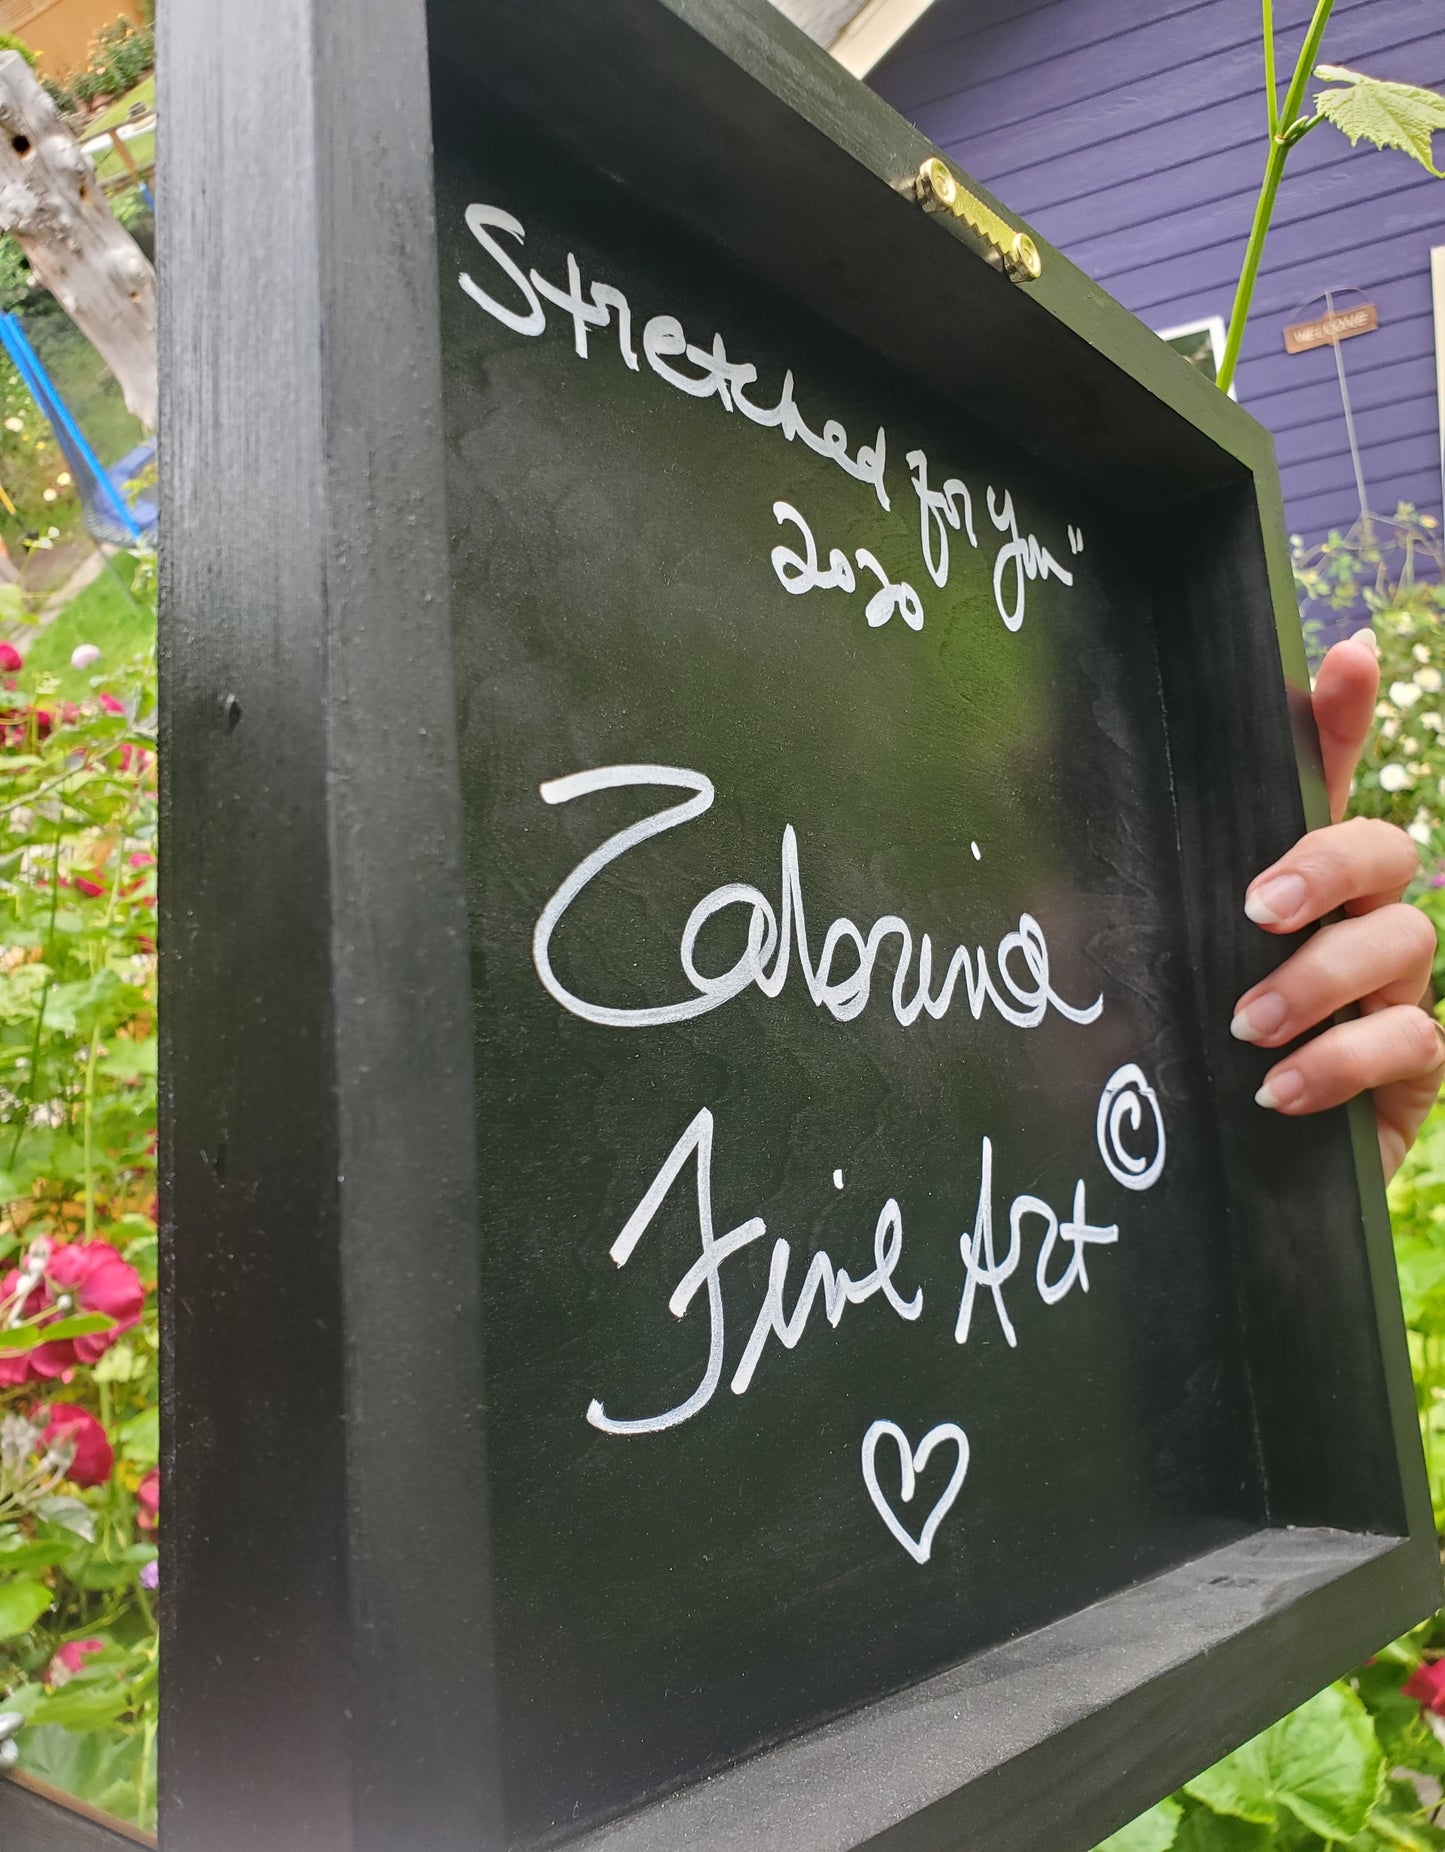 Stretched for you"
2020
Zabrina
Fine Art ©
WELCOME